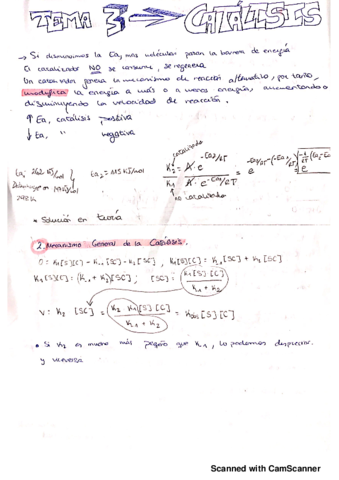 TEMA 3 → CATÁLISIS
→ Si disminuimos la Ea, más moléculas pasan la barrera de energía
El catalizador NO se consume, se regenera
Un catalizador genera un mecanismo de reacción alternativo, por tanto
modifica la energía a más o a menos energía, aumentando o
disminuyendo la velocidad de reacción.
↑ Ea, catálisis positiva
↓ Ea, " negativa
catalizado
K2/K1 = A·e^-Ea2/RT / A·e^-Ea1/RT = e
no catalizado
Ea2 = 115 KJ/mol
298 K
• Solución en teoría
2. Mecanismo General de la Catálisis.
0 = K1[S][C] - K-1[SC] - K2[SC] , K1[S][C] = K-1[SC] + K2[SC]
K1[S][C] = (K-1 + K2)[SC] ; [SC] = K1[S][C] / K-1 + K2
V = K2 [SC] = K2 K1[S][C] / K-1 + K2 = Kobs[S][C]
• Si K2 es mucho más pequeño que K-1, lo podemos despreciar.
y viceversa
Scanned with CamScanner